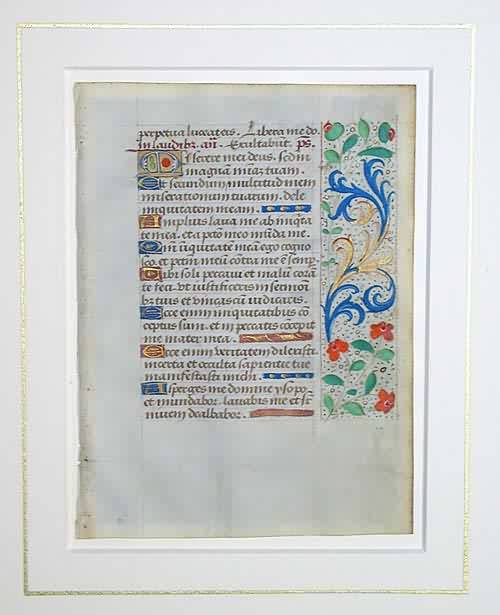 perpetua luceat eis. Libera me do.
In laudibz. an. Exultabūt. ps.
Miserere mei deus. sedm
magnā miaz tuam.
Et secundum multitudinem
miserationum tuarum. dele
iniquitatem meam.
Amplius lava me ab iniqta
te mea. et a pctō meo mūda me.
Qm̄ iniquitatē meā ego cogno
sco. et pctm̄ meū cōtra me ē semp.
Tibi soli peccavi et malū corā
te feci. ut iustificeris in sermōi
bz tuis et vincas cū iudicaris.
Ecce enim in iniquitatibus cō
ceptus sum. et in peccatis cōcepit
me mater mea.
Ecce enim veritatem dilexisti.
incerta et occulta sapientie tue
manifestasti michi.
Asperges me domine ysopo
et mundabor. lavabis me et sr̄
nivem dealbabor.